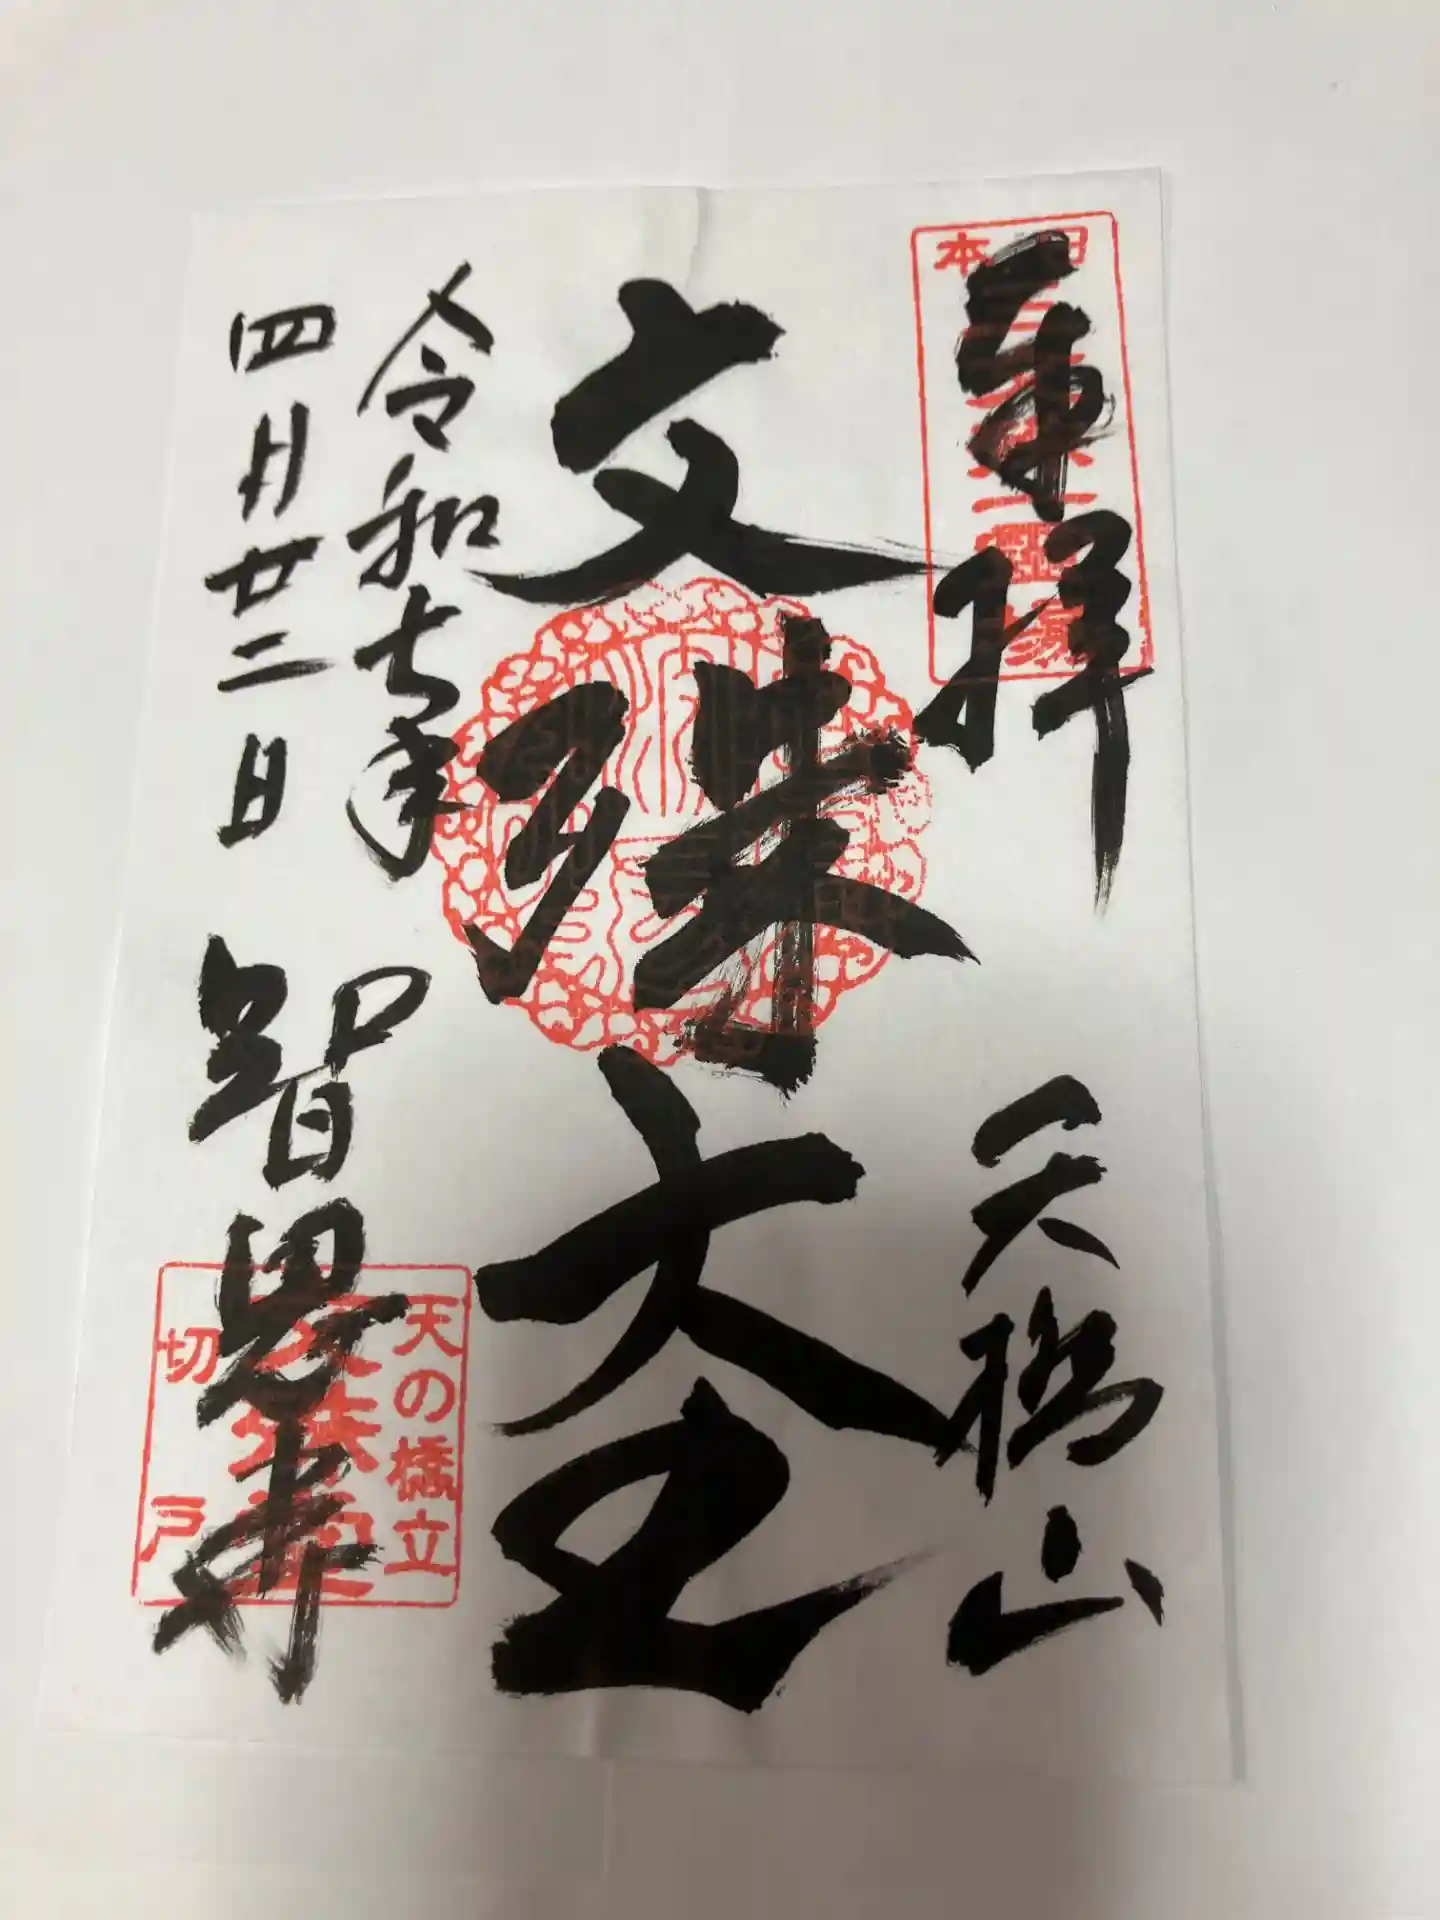 奉拝
天橋山
文殊大士
令和七年
四月廿二日
智恩寺
天の橋立
文殊堂
切戸